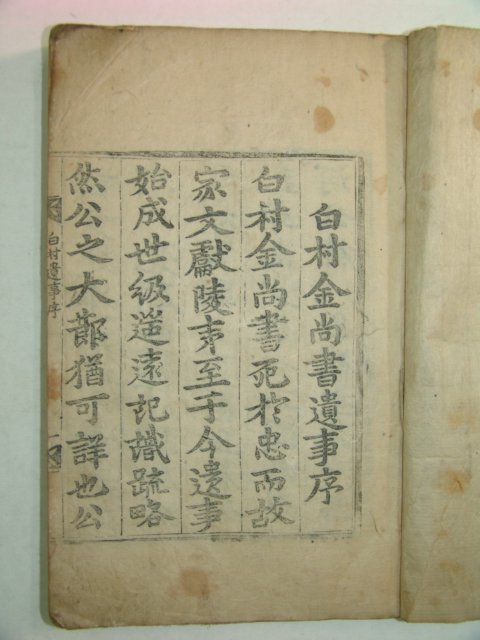 白村金尚書遺事序
白村金尚書死於忠而故
家文獻陵夷至于今遺事
始成世級遥遠記識疏略
然公之大節猶可詳也公
白村遺事序
一